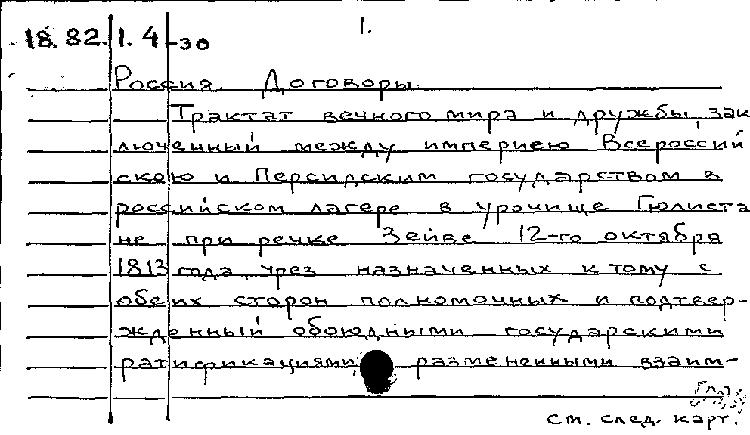 1.
18.82.1.4-30
Россия. Договоры.
Трактат вечного мира и дружбы, зак
люченный между империею Всероссий
скою и Персидским государством в
российском лагере в урочище Гюлиста
не при речке Зейве 12-го октября
1813 года чрез назначенных к тому с
обеих сторон полномочных и подтвер-
жденный обоюдными государскими
ратификациями, размененными взаим-
см. след. карт.